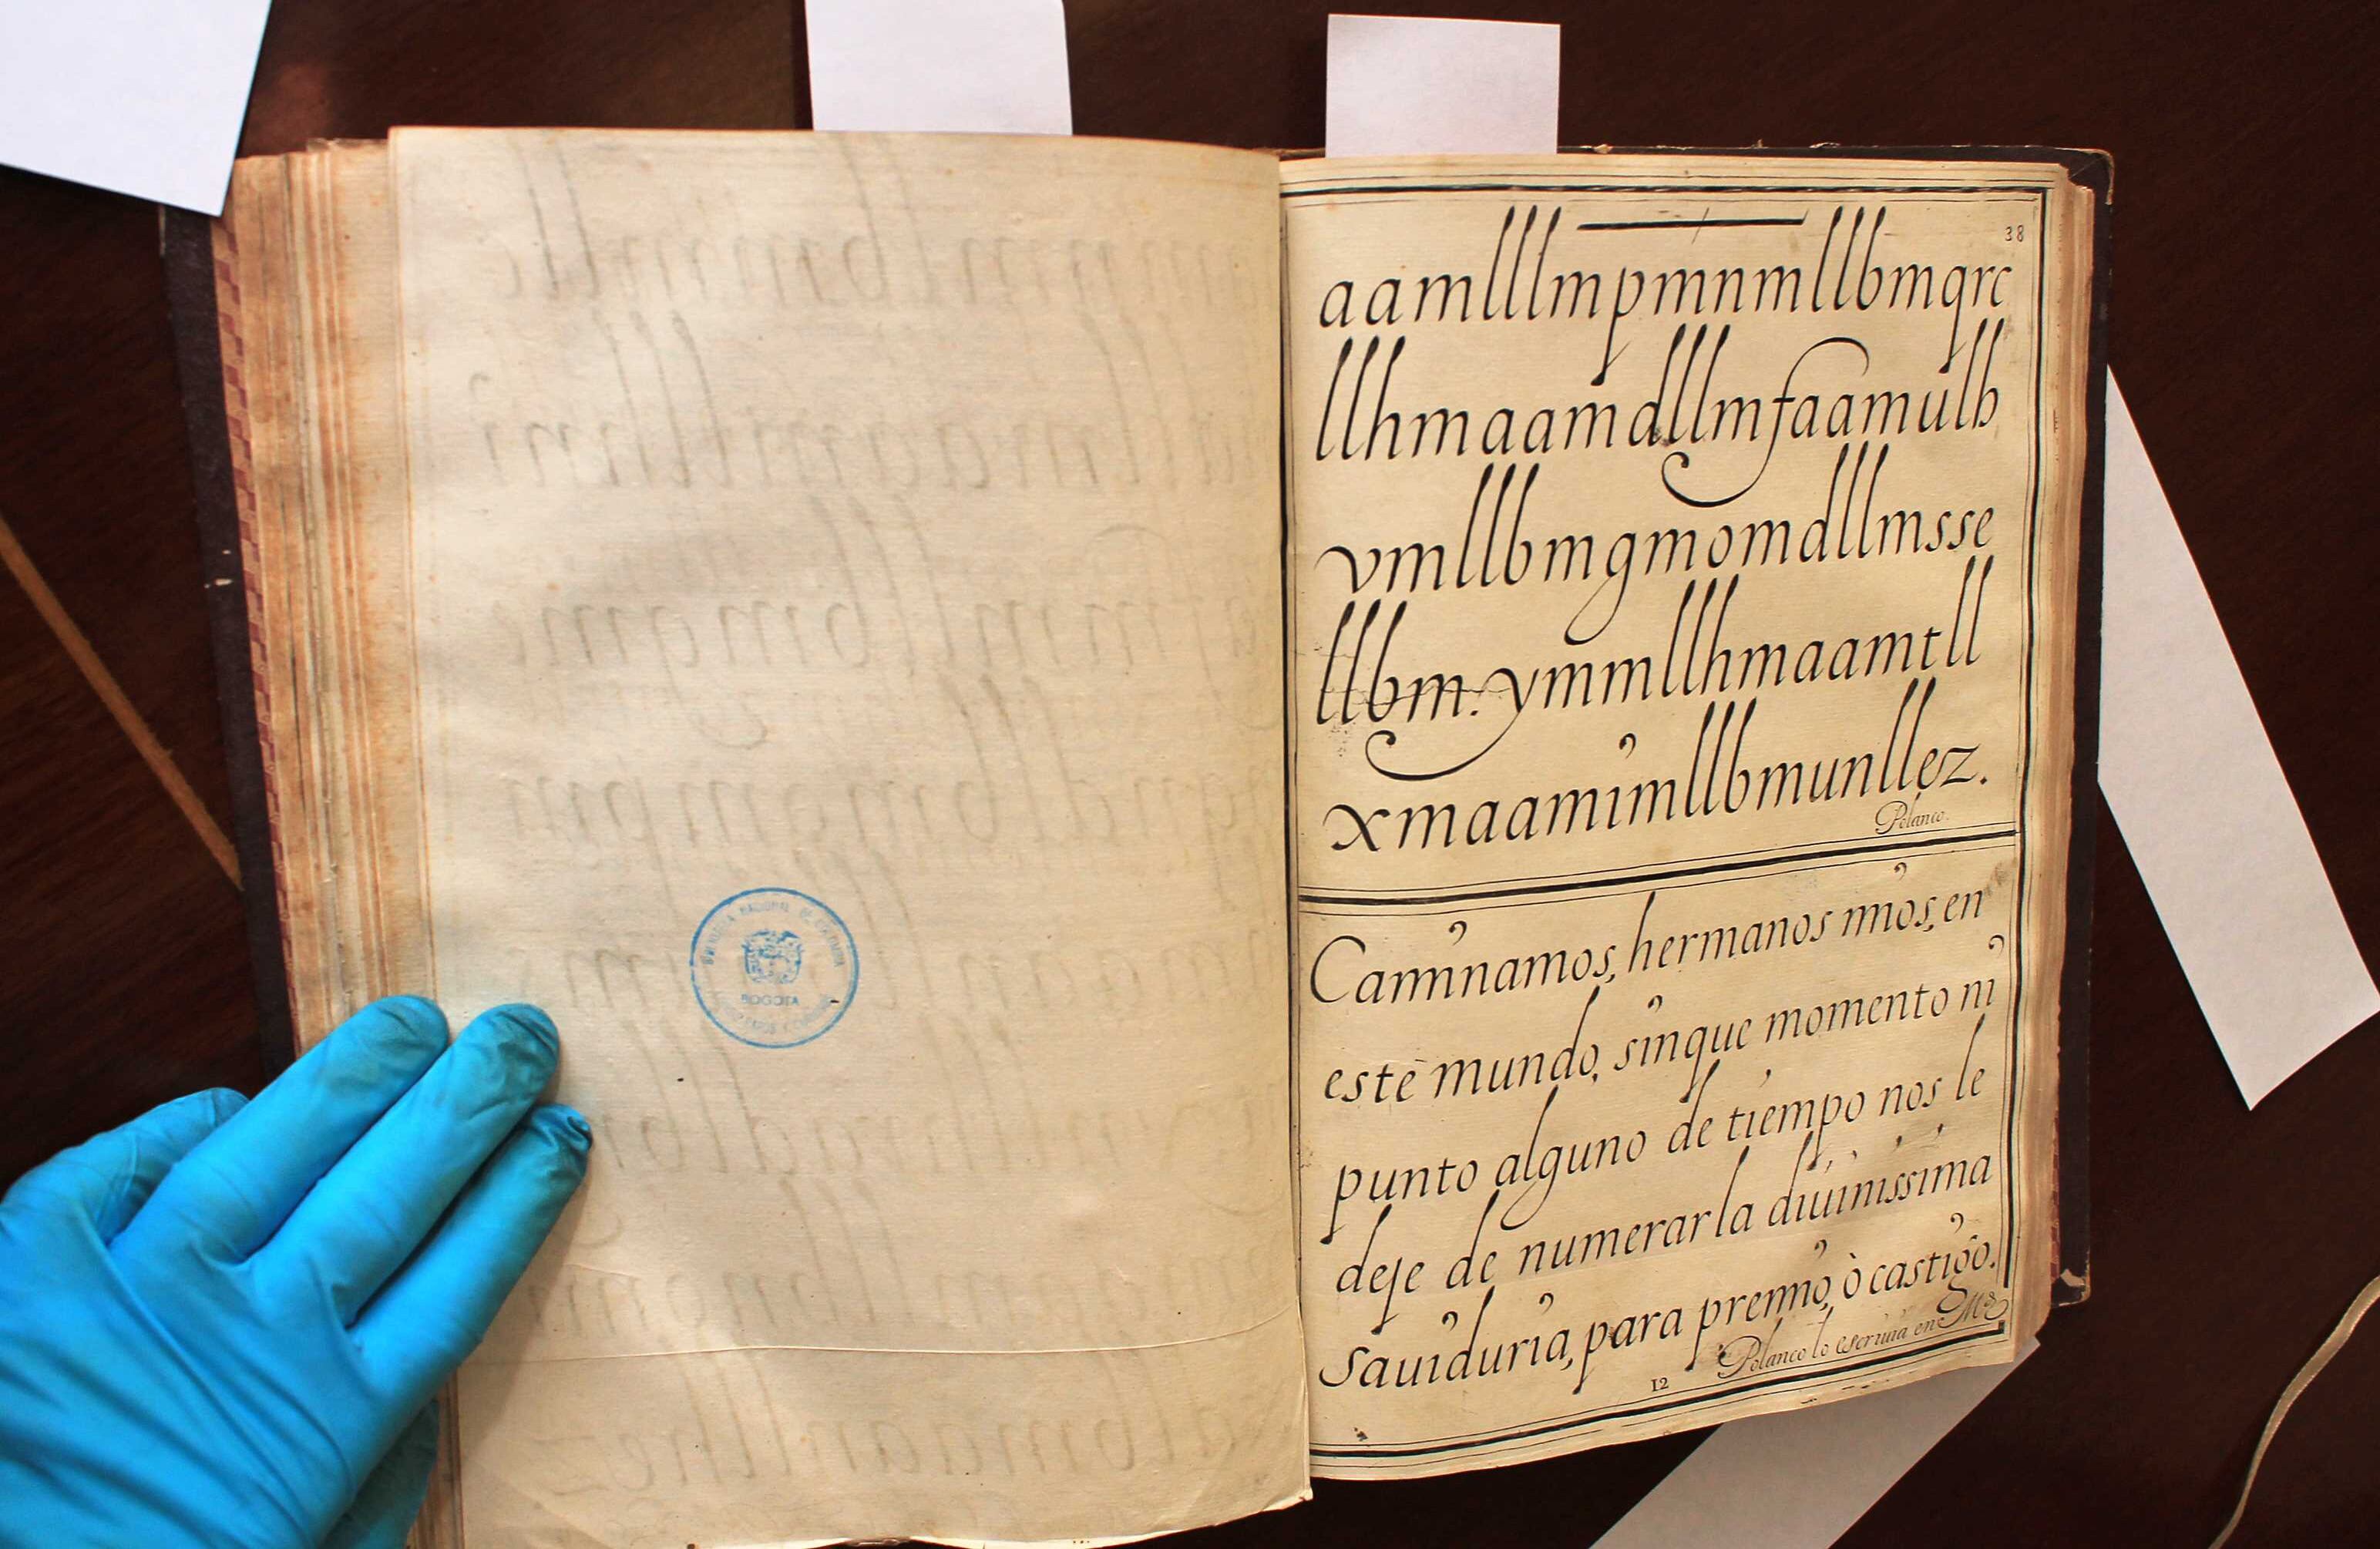 BOGOTA
38
aamlllmpmnmllbmqrc
llhmaamdllmfaamulb
vmllbmgmomdllmsse
llbm.ymmllhmaamtll
xmaamimllbmunllez.
Polanco.
Caminamos, hermanos mios, en
este mundo, sinque momento ni
punto alguno de tiempo nos le
deje de numerar la diuinissima
sauiduria, para premio, ò castigo.
Polanco lo escriuia en Md
12